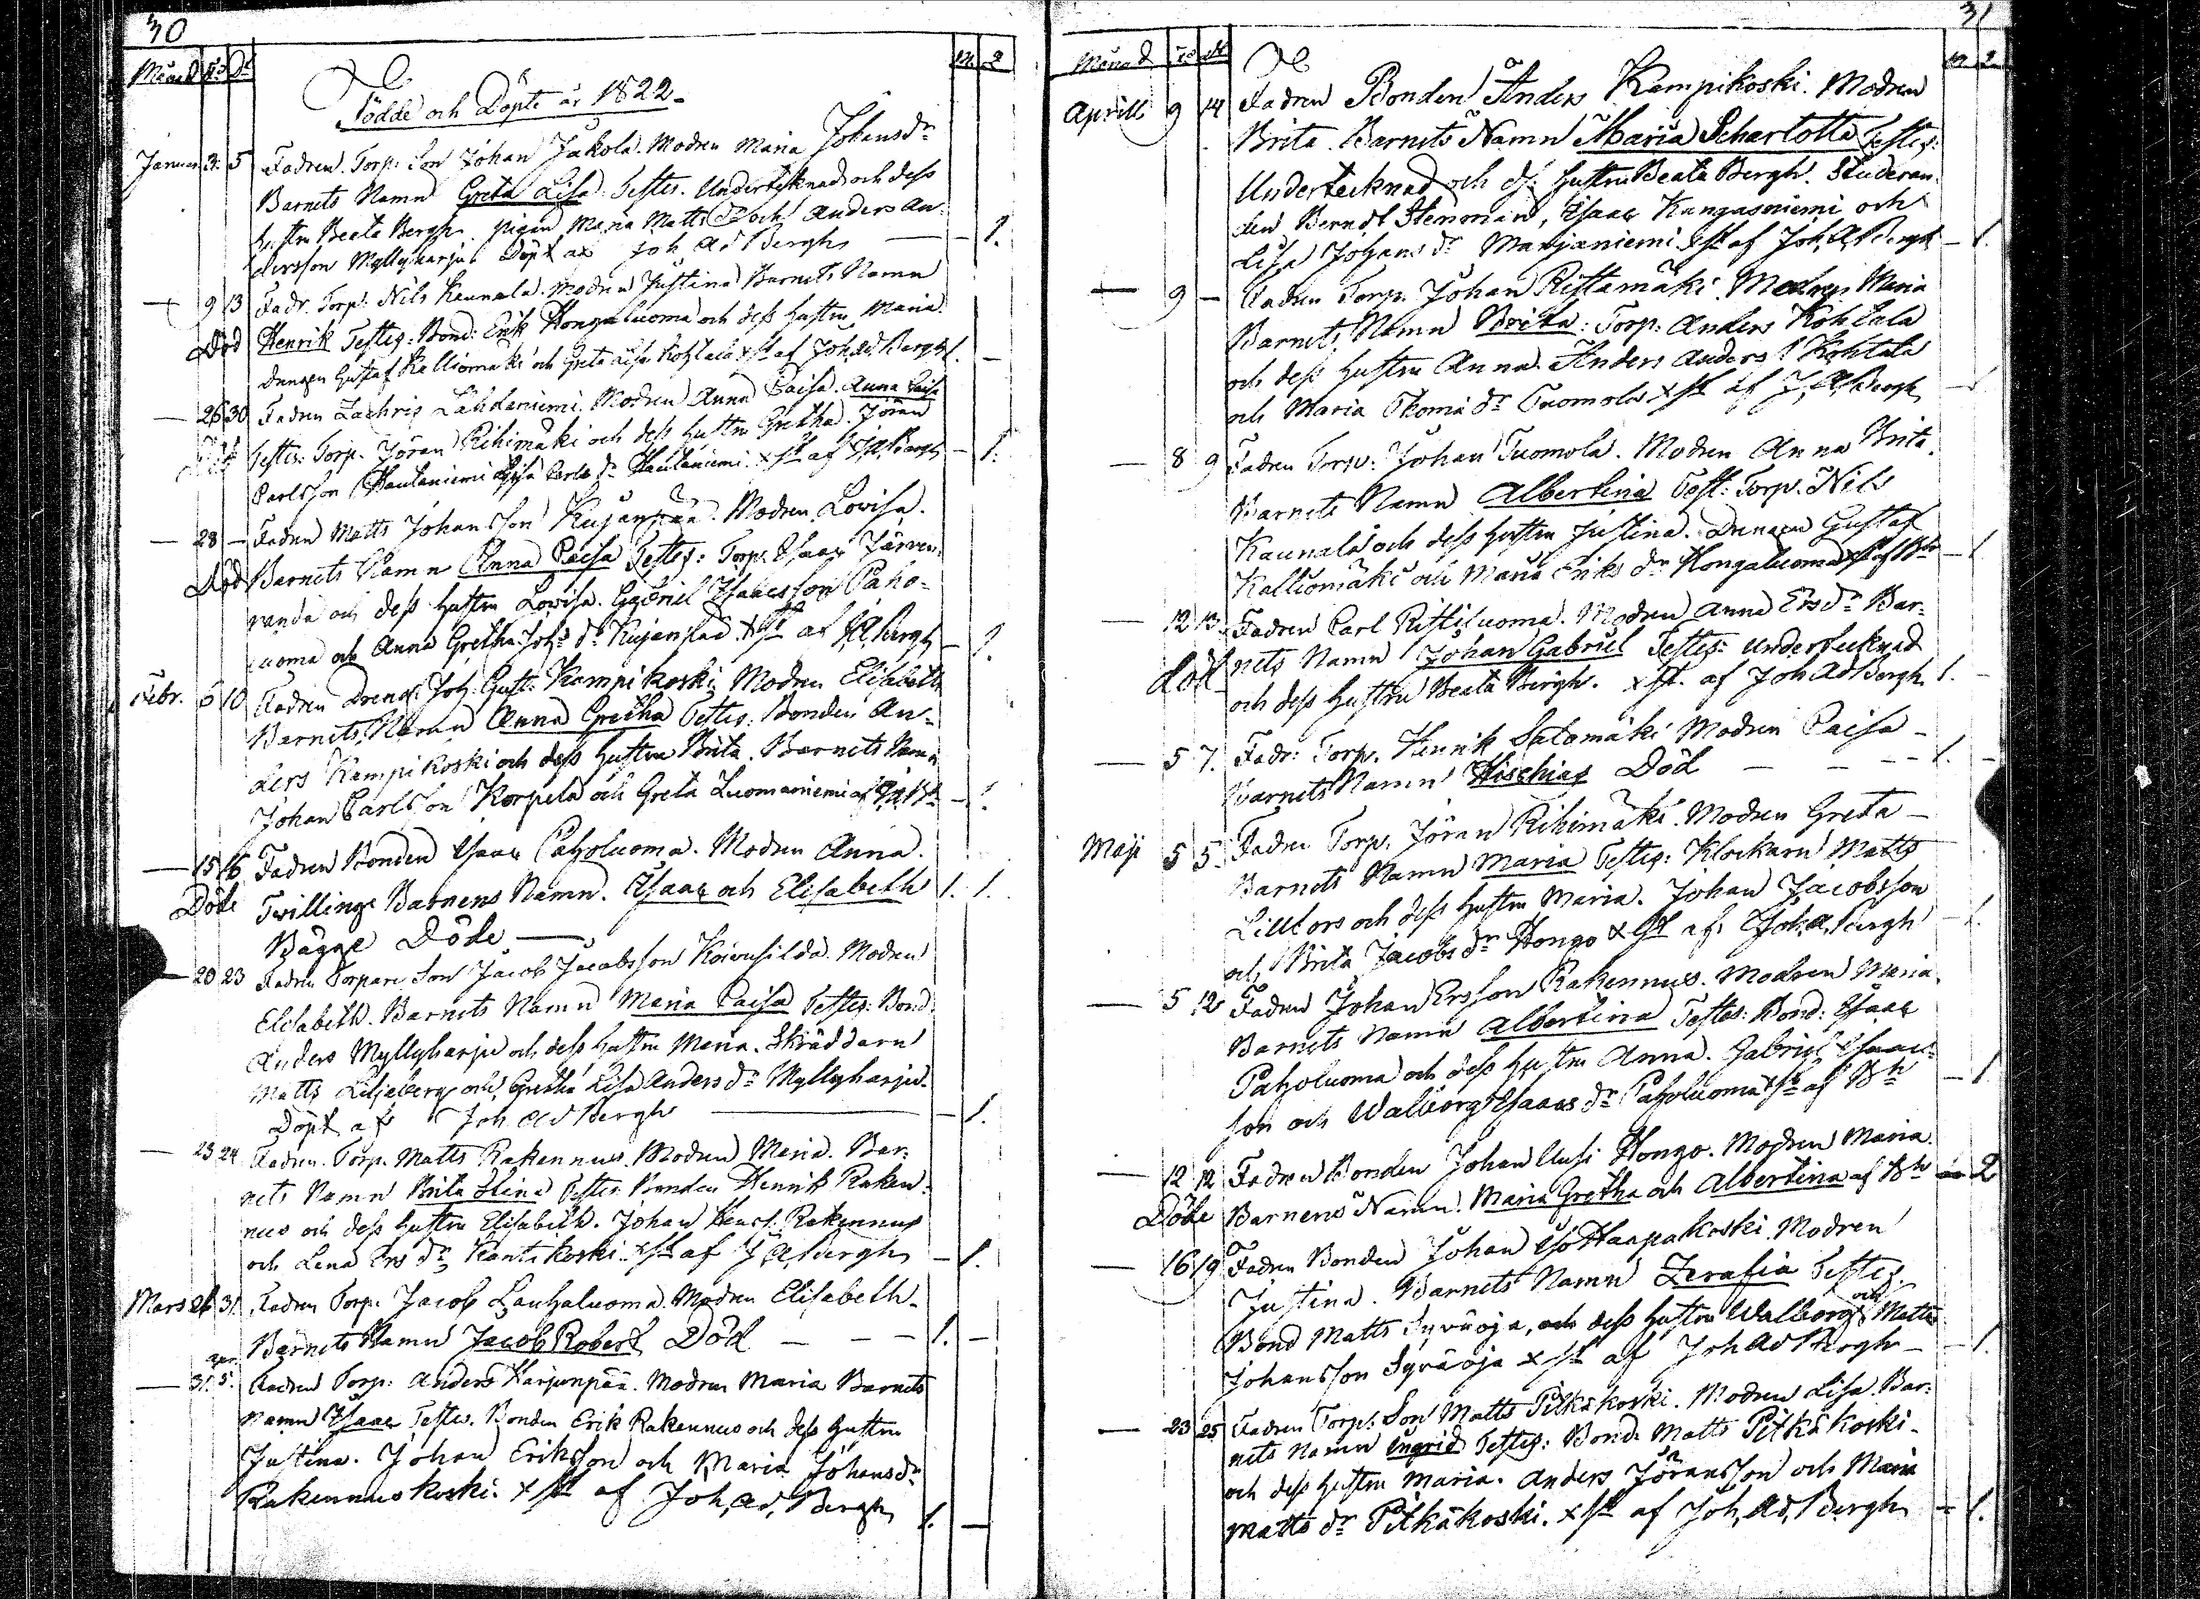 30
Månad Fd Dt M 2
Födde och Döpte år 1822.
Januar. 3. 5 Fadren Torp: Son Johan Jakola. Modren Maria Johansdr
Barnets Namn Greta Lisa. Testes. Undertecknad och dess
Hustru Beata Bergh. pigan Maria Matts dr och Anders An-
dersson Myllyharju Döpt af Joh Ad Bergh — 1.
— 9 13 Fadr. Torp: Nils Kaunala. Modren Justina Barnets Namn
Död Henrik Testes: Bond: Erik Hongaluoma och dess hustru Maria
Drengen Gustaf Kalliomäki och Greta Lisa Kohtala xst af Joh. Ad. Bergh 1. —
— 26 30 Fadren Zachris Lahdeniemi. Modren Anna Caisa. Anna Caisa
Testes: Torp. Jöran Rihimäki och dess hustru Gretha. Jöran
Carlsson Hautaniemi Carls dr Hautaniemi xst af J. A. Bergh — 1.
— 28 — Fadren Matts Johansson Kujanpää. Modren Lovisa.
Död Barnets Namn Anna Caisa Testes: Torp. Isaac Järven-
randa och dess hustru Lovisa. Gabriel Isacsson Paho-
luoma och Anna Gretha Joh: dr Kujanpää xst af J. A. Bergh — 1.
Febr. 6 10 Fadren Dreng. Joh. Gust: Kampikoski Modren Elisabeth
Barnets Namn Anna Gretha Testes: Bonden An-
ders Kampikoski och dess hustru Brita. Barnets Namn
Johan Carlsson Korpela och Greta Luomaniemi af — 1.
— 15 16 Fadren Bonden Isaac Paholuoma. Modren Anna.
Döde Twillinge Barnens Namn. Isaac och Elisabeth 1. 1.
Bägge Döde —
— 20 23 Fadren Torpare Son Jacob Jacobsson Koivusilda. Modren
Elisabeth. Barnets Namn Maria Caisa Testes: Bond:
Anders Myllyharju och dess hustru Maria. Skräddarn
Matts Liljeberg och Gretha Lisa Anders dr Myllyharju.
Döpt af Joh Ad Bergh — — 1.
— 23 24 Fadren. Torp. Matts Rakennus. Modren Maria. Bar-
nets Namn Brita Stina Testes Bonden Henrik Raken-
nus och dess hustru Elisabeth. Johan Rakennus
och Lena Ers dr Kantikoski. xst af J. A. Bergh — 1.
Mars 26 31. Fadren Torp. Jacob Lauhaluoma. Modren Elisabeth.
Barnets Namn Jacob Robert Död — — — 1. —
— 31. apr. 5. Fadren Torp: Anders Harjunpää. Modren Maria Barnets
namn Isaac Testes. Bonden Erik Rakennus och dess hustru
Justina. Johan Eriksson och Maria Johansdr
Rakennuskoski. xst af Joh. Ad. Bergh 1. —
31
Månad Fd Dt M 2
Aprill 9 14 Fadren Bonden Anders Kampikoski. Modren
Brita. Barnets Namn Maria Scharlotta Testes:
Undertecknad och ds: hustru Beata Bergh. Studeran-
den Berndt Stenman, Isaac Kangasniemi och
Lisa Johans dr Marjaniemi xst af Joh. A. Bergh — 1.
— 9 — Fadren Torp. Johan Ristamäki. Modren Maria
Barnets Namn Brita: Torp: Anders Kohtala
och dess hustru Anna. Anders Anders. Kohtala
och Maria Thoma dr Tuomola xst af J. A. Bergh — 1
— 8 9 Fadren Torp: Johan Tuomola. Modren Anna Brita.
Barnets Namn Albertina Test: Torp. Nils
Kaunala och dess hustru Justina. Drengen Gustaf
Kalliomäki och Maria Eriks dr Hongaluoma xst af Bh — 1
— 12 13. Fadren Carl Ristiluoma. Modren Anna Ersdr Bar-
Död nets Namn Johan Gabriel Testes: undertecknad
och dess hustru Beata Bergh. xst. af Joh Ad Bergh 1. —
— 5 7. Fadr: Torp. Henrik Salomäki Modren Caisa —
Barnets Namn Hischias Död — — — 1. —
Maji 5 5. Fadren Torp. Jöran Rihimäki. Modren Greta —
Barnets Namn Maria Testes: Klockarn Matts
Lillfors och dess hustru Maria. Johan Jacobsson
och Brita Jacobs dr Hongo xst af Joh. A. Bergh — 1.
— 5 12 Fadren Johan Ersson Rakennus. Modren Maria.
Barnets Namn Albertina Testes: Bond: Isaac
Paholuoma och dess hustru Anna. Gabriel Isaac-
son och Walborg Isaacs dr Paholuoma xst af Bh — 1
— 12 12 Fadren Bonden Johan Uusi Hongo. Modren Maria.
Döde Barnens Namn. Maria Gretha och Albertina af Bh — 2
— 16 19 Fadren Bonden Johan Iso Haapakoski. Modren
Justina. Barnets Namn Serafia Testes.
Bond Matts Syväoja, och dess hustru Walborg och Matts
Johansson Syväoja xst af Joh Ad Bergh — — 1.
— 23 25 Fadren Torp. Son Matts Pitkäkoski. Modren Lisa. Bar-
nets Namn Ingrid Testes: Bond: Matts Pitkäkoski.
och dess hustru Maria. Anders Jöransson och Maria
Matts dr Pitkäkoski. xst af Joh. Ad. Bergh — 1.